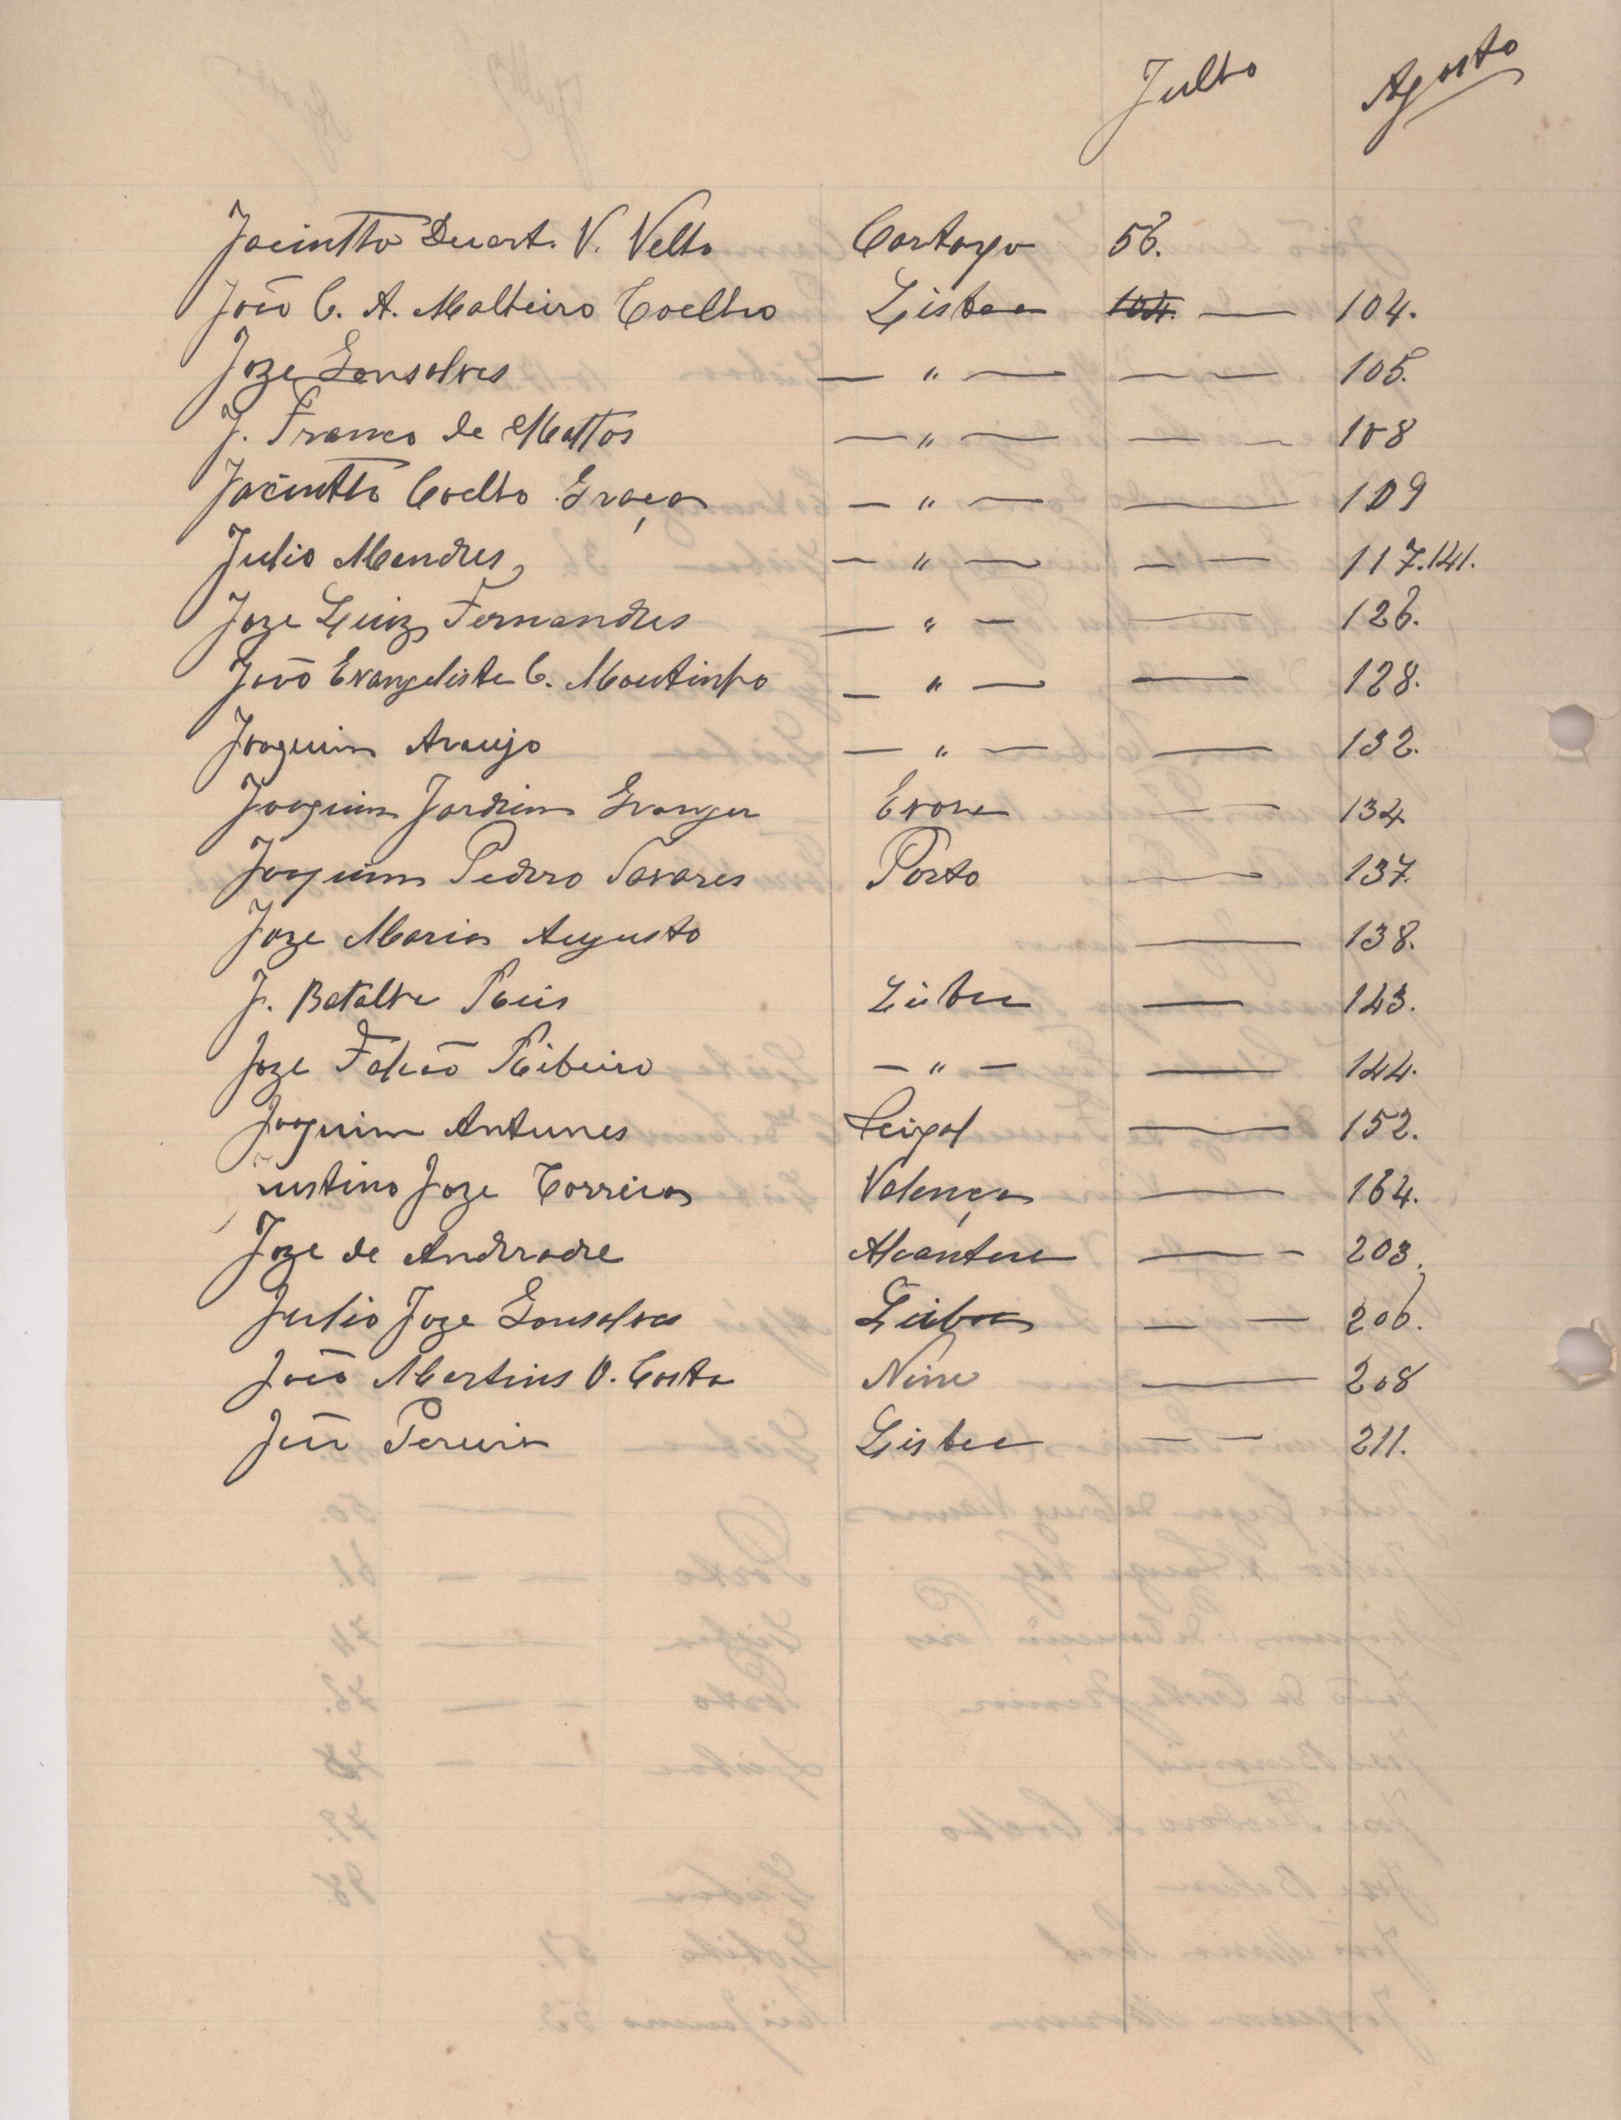 Julho Agosto
Jacintho Duart. V. Velho Cartaxo 56.
João C. A. Malheiro Coelho Lisboa 104. — 104.
Joze Gonsalves — " — — — 105.
J. Franco de Mattos — " — — — 108
Jacintho Coelho Graça — " — — 109
Julio Mendes — " — — — 117.141.
Joze Luiz Fernandes — " — — 126.
João Evangelista C. Moutinho — " — — 128.
Joaquim Araujo — " — — 132.
Joaquim Jardim Granger Evora — — 134
Joaquim Pedro Tavares Porto — 137.
Joze Maria Augusto — 138.
J. Batalha Reis Lisboa — 143.
Joze Falcão Ribeiro — " — — 144.
Joaquim Antunes — 152.
Justino Joze Correia Valença — 164.
Joze de Andrade Alcantara — — 203.
Julio Joze Gonsalves Lisboa — — 206.
João Martins O. Costa Nine — 208
João Pereira Lisboa — — 211.